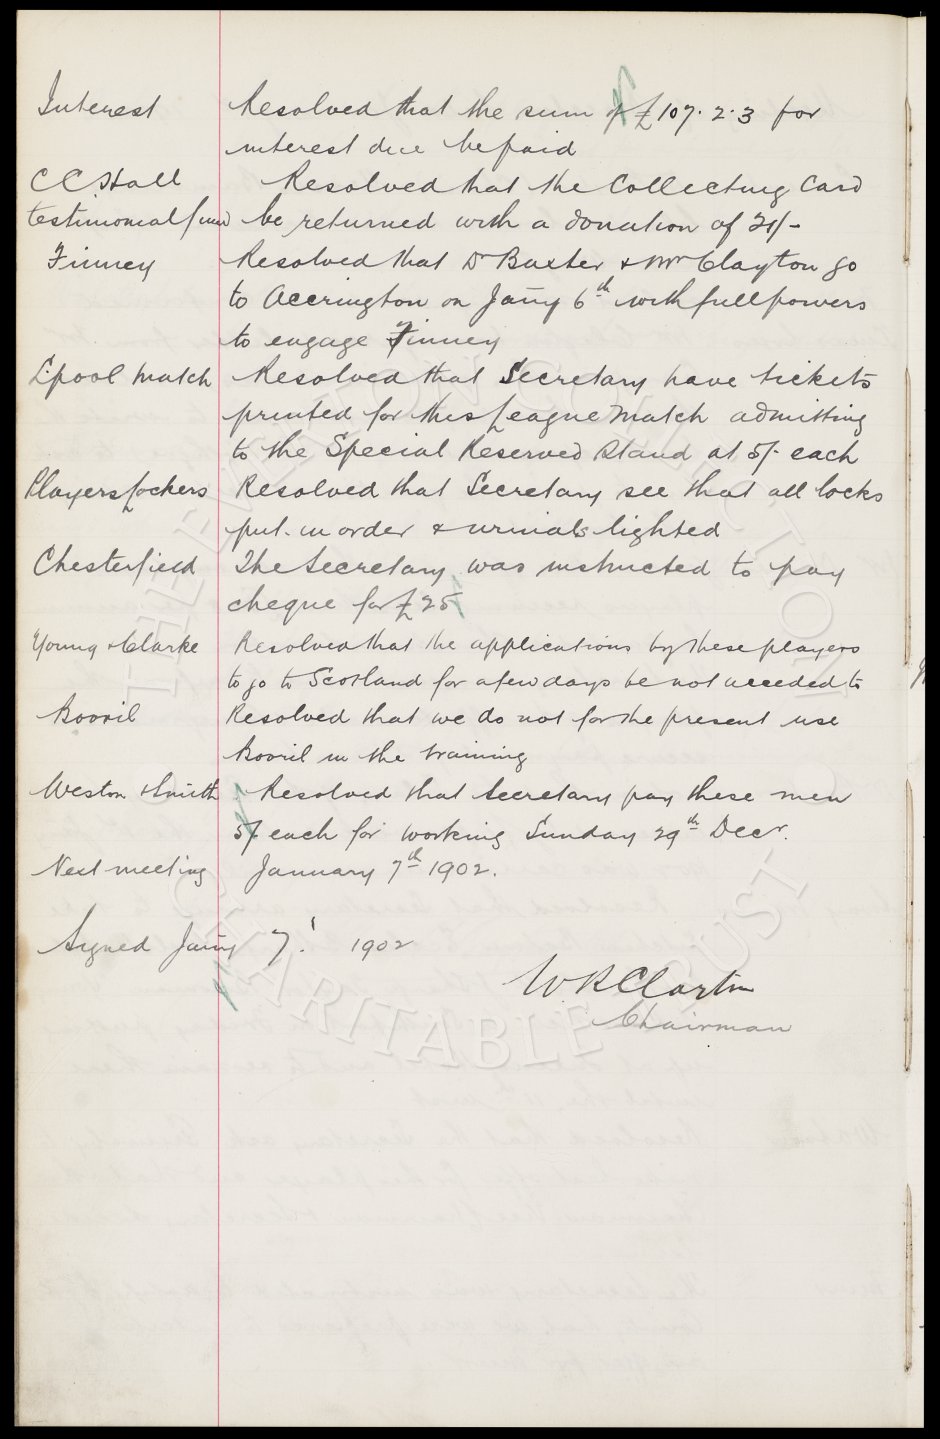 Interest Resolved that the sum of £107. 2. 3 for
interest due be paid
C C Hall Resolved that the Collecting Card
testimonial fund be returned with a donation of 21/-
Finney Resolved that Dr Baxter & Mr Clayton go
to Accrington on Jany 6th with full powers
to engage Finney
L'pool Match Resolved that Secretary have tickets
printed for this League Match admitting
to the Special Reserved Stand at 5/- each
Players Lockers Resolved that Secretary see that all locks
put in order & urinals lighted
Chesterfield The Secretary was instructed to pay
cheque for £25
Young & Clarke Resolved that the applications by these players
to go to Scotland for a few days be not acceded to
Bovril Resolved that we do not for the present use
Bovril in the training
Weston & Smith Resolved that Secretary pay these men
5/- each for working Sunday 29th Decr.
Next meeting January 7th 1902.
Signed Jany 7. 1902
W R Clayton
Chairman
THE EVERTON COLLECTION
CHARITABLE TRUST